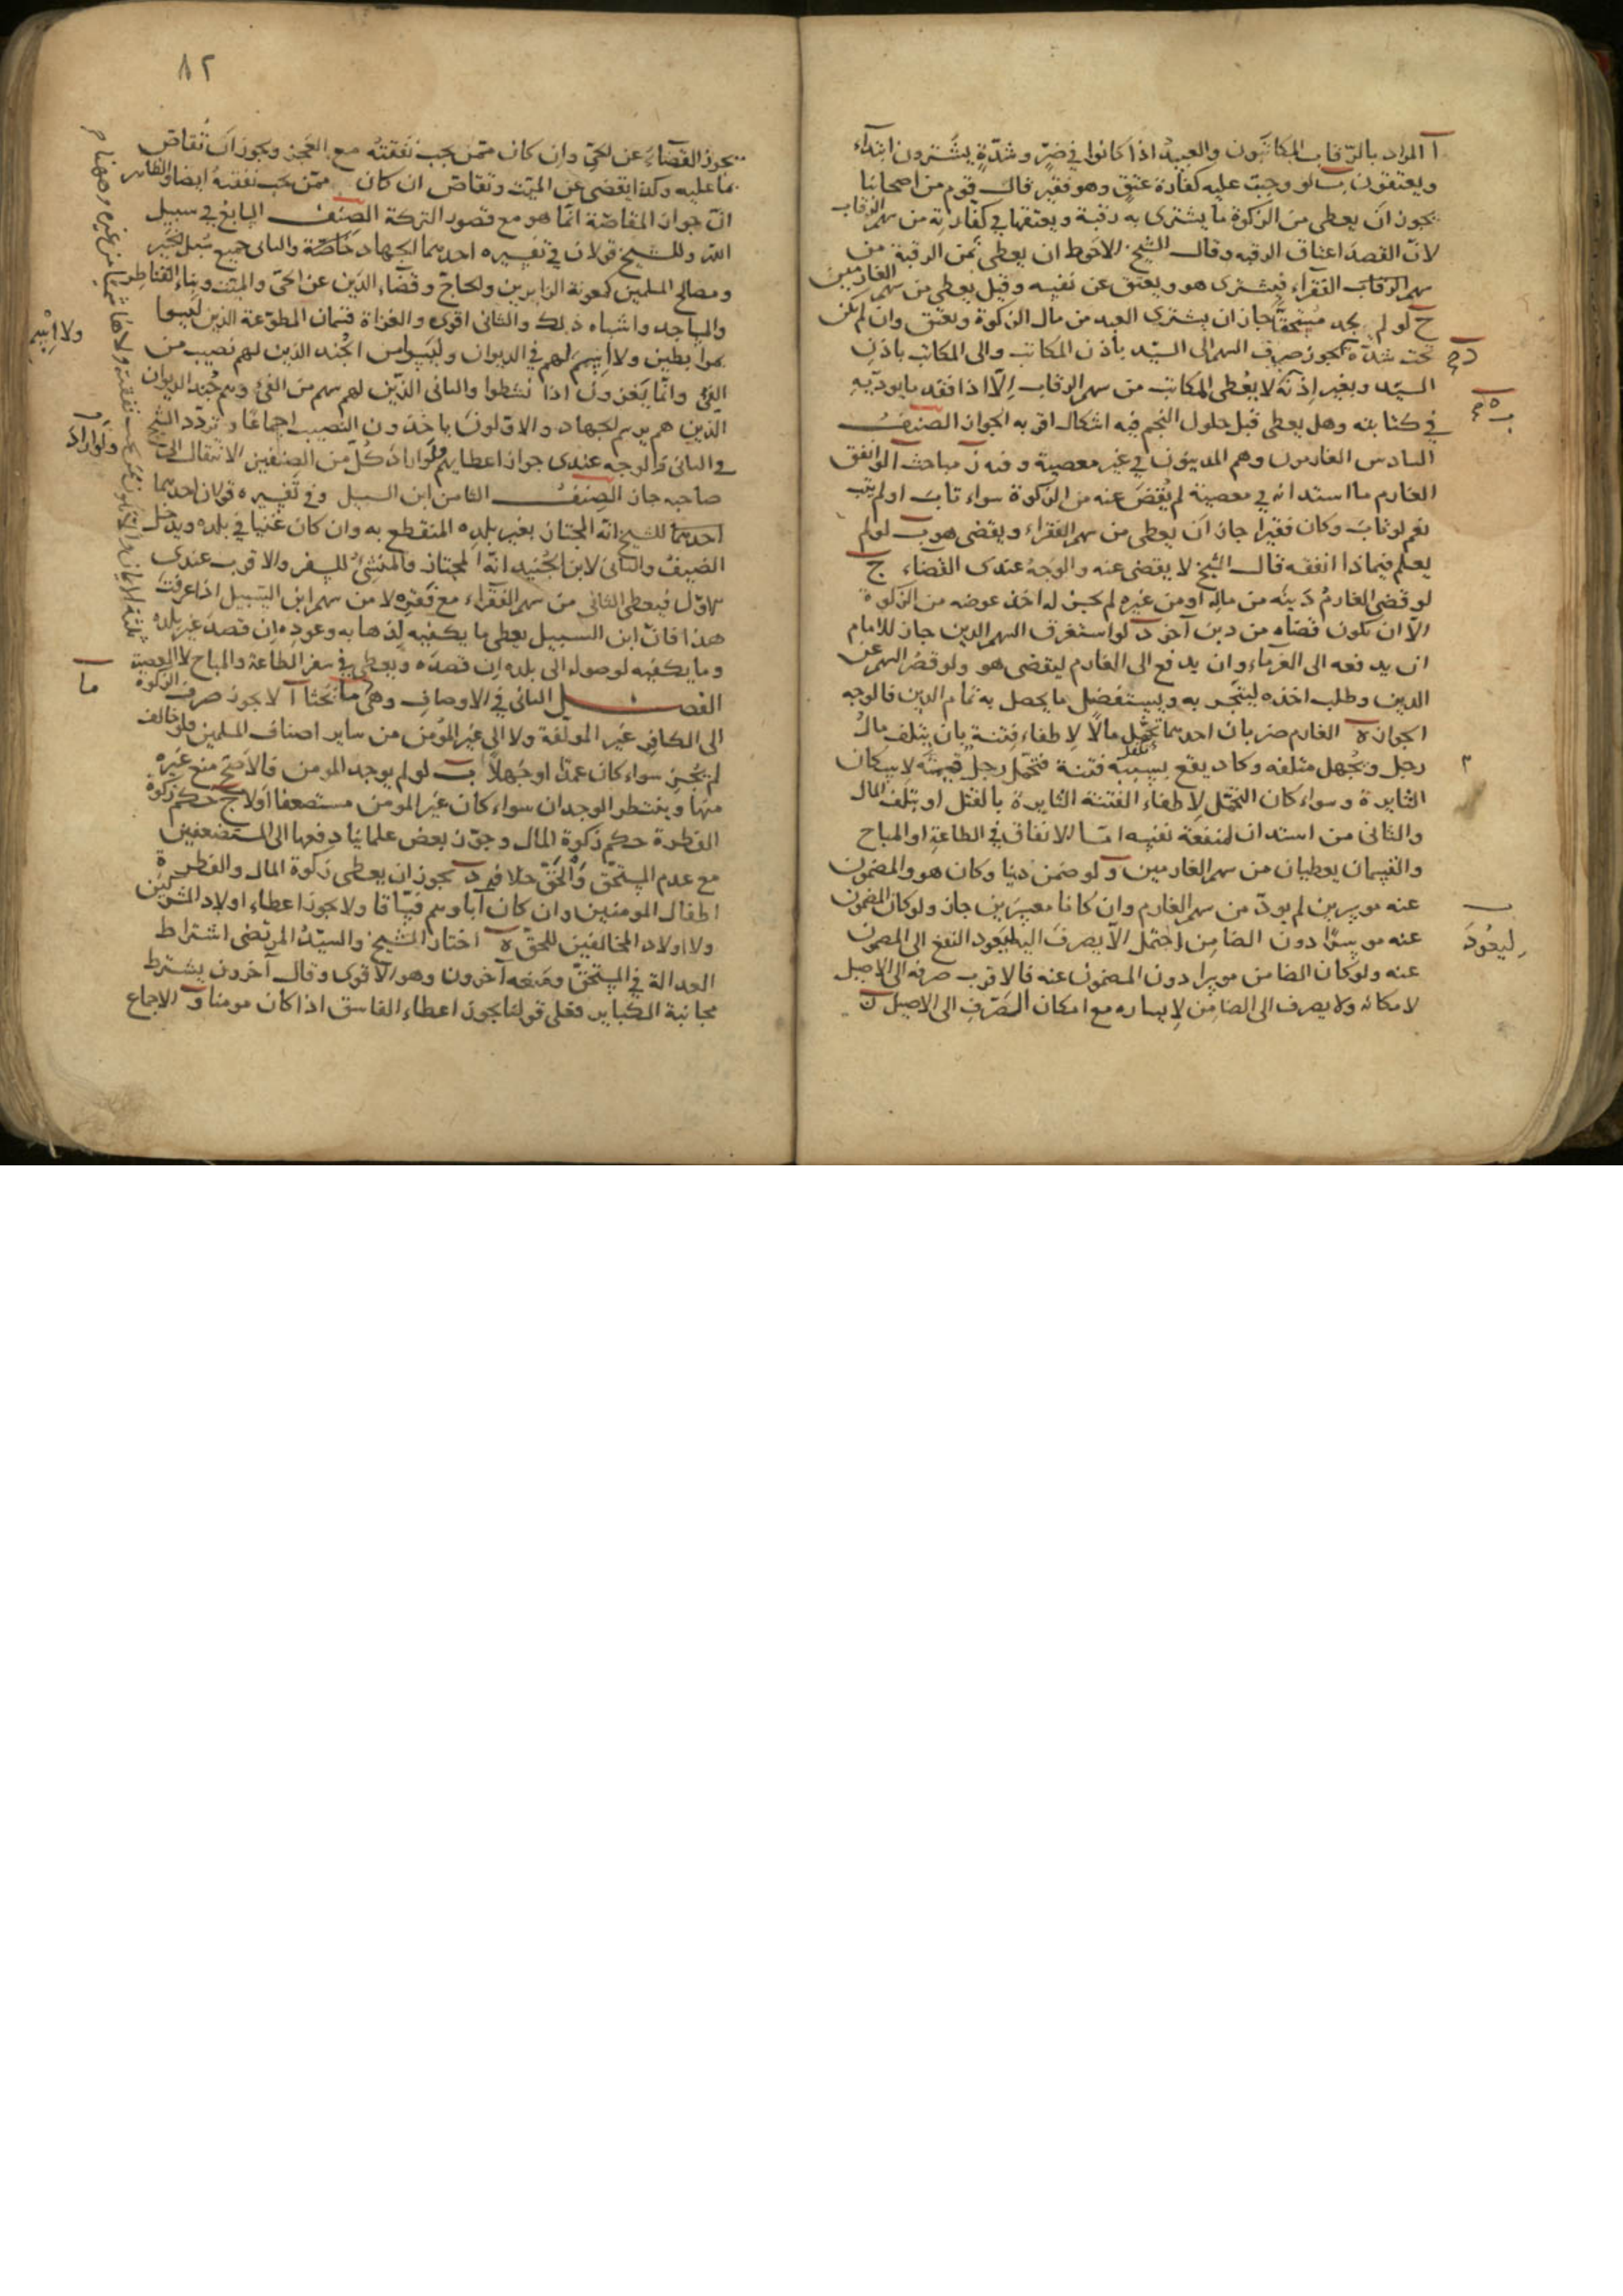 آ المراد بالرقاب المكاتبون والعبيد اذا كانوا في ضر وشدة يشترون ابتداء
ويعتقون ب لو وجبت عليه كفارة عتق وهو فقير قال قوم من اصحابنا
يجوز ان يعطى من الزكوة ما يشترى به رقبة ويعتقها في كفارته من سهم الرقاب
لان القصد اعتاق الرقبه وقال الشيخ الاحوط ان يعطى ثمن الرقبة من
سهم الفقراء فيشترى هو ويعتق عن نفسه وقيل يعطى من سهم الغارمين
ج لو لم يجد مستحقا جاز ان يشترى العبد من مال الزكوة ويعتق وان لم يكن
تحت شدة د يجوز صرف السهم الى السيد بأذن المكاتب والى المكاتب باذن
السيد وبغير اذنه ه لا يعطى المكاتب من سهم الرقاب الا اذا فقد ما يوديه
في كتابته وهل يعطى قبل حلول النجم فيه اشكال اقربه الجواز الصنف
السادس الغارمون وهم المدينون في غير معصية وفيه مباحث آ لو انفق
الغارم ما استدانه في معصية لم يقض عنه من الزكوة سواء تاب او لم يتب
نعم لو تاب وكان فقيرا جاز ان يعطى من سهم الفقراء ويقضى هو ب لو لم
يعلم فيما ذا انفقه قال الشيخ لا يقضى عنه والوجه عندى القضاء ج
لو قضى الغارم دينه من ماله او من غيره لم يجز له اخذ عوضه من الزكوة
الا ان يكون قضاه من دين آخر د لو استغرق السهم الدين جاز للامام
ان يدفعه الى الغرماء وان يدفع الى الغارم ليقضى هو ولو قصر السهم عن
الدين وطلب اخذه ليتجر به ويستفضل ما يحصل به تمام الدين فالوجه
الجواز ه الغارم ضربان احدهما تحمل مالا لاطفاء فتنة بان يتلف مال
رجل ويجهل متلفه وكاد يقع بسببه فتنة فتحمل رجل قيمته لاسكان
الثايرة وسواء كان التحمل لاطفاء الفتنة الثايرة بالقتل او بتلف المال
والثانى من استدان لمنفعة نفسه اما الانفاق في الطاعة او المباح
والقسمان يعطيان من سهم الغارمين و لو ضمن دينا وكان هو والمضمون
عنه موسرين لم يود من سهم الغارم وان كانا معسرين جاز ولو كان المضمون
عنه موسرا دون الضامن احتمل الا يصرف اليه ليعود النفع الى المضمون
عنه ولو كان الضامن موسرا دون المضمون عنه فالاقرب صرفه الى الاصيل
لامكانه ولا يصرف الى الضامن لايساره مع امكان الصرف الى الاصيل ز
ليعود
٨٢
يجوز القضاء عن الحي وان كان ممن يجب نفقته مع العجز ويجوز ان تقاص
بما عليه وكذا يقضى عن الميت وتقاص ان كان ممن يجب نفقته ايضا والظاهر
ان جواز المقاصة انما هو مع قصور التركة الصنف السابع في سبيل
الله وللشيخ قولان في تفسيره احدهما الجهاد خاصة والثانى جميع سبل الخير
ومصالح المسلمين كمعونة الزايرين والحاج وقضاء الدين عن الحي والميت وبناء القناطر
والمساجد واشباه ذلك والثانى اقوى والغزاة قسمان المطوعة الذين ليسوا
بمرابطين ولا اسم لهم في الديوان وليسوا من الجند الذين لهم نصيب من
الفئ وانما يغزون اذا نشطوا والثانى الذين لهم سهم من الفئ وهم جند الديوان
الذين هم برسم الجهاد والاولون ياخذون النصيب اجماعا وتردد الشيخ
في الثانى والوجه عندى جواز اعطايهم ولو اراد كل من الصنفين الانتقال الى
صاحبه جاز الصنف الثامن ابن السبيل وفي تفسيره قولان احدهما
احدهما للشيخ انه المجتاز بغير بلده المنقطع به وان كان غنيا في بلده ويدخل
الضيف والثانى لابن الجنيد انه المجتاز والمنشئ للسفر والاقرب عندى
الاول فيعطى الثانى من سهم الفقراء مع فقره لا من سهم ابن السبيل اذا عرفت
هذا فان ابن السبيل يعطى ما يكفيه لذهابه وعوده ان قصد غير بلده
وما يكفيه لوصوله الى بلده ان قصده ويعطى في سفر الطاعة والمباح لا المعصية
الفصل الثانى في الاوصاف وهى مباحث آ لا يجوز صرف الزكوة
الى الكافر غير المولفة ولا الى غير المؤمن من ساير اصناف المسلمين ولو خالف
لم يجز سواء كان عمدا او جهلا ب لو لم يوجد المومن فالاصح منع غيره
منها وينتظر الوجدان سواء كان غير المومن مستضعفا اولا ج حكم زكوة
الفطرة حكم زكوة المال وجوز بعض علمائنا دفعها الى المستضعفين
مع عدم المستحق والحق خلافه د يجوز ان يعطى زكوة المال والفطرة
اطفال المومنين وان كان آباوهم فساقا ولا يجوز اعطاء اولاد المشركين
ولا اولاد المخالفين للحق ه اختار الشيخ والسيد المرتضى اشتراط
العدالة في المستحق ومنعه آخرون وهو الاقوى وقال آخرون يشترط
مجانبة الكباير فعلى قولنا يجوز اعطاء الفاسق اذا كان مومنا و الاجماع
ولا اسم
ولو اراد
ما